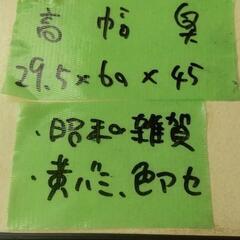 高 幅 奥
29.5×60×45
・昭和雑貨
・黄バミ、色アセ